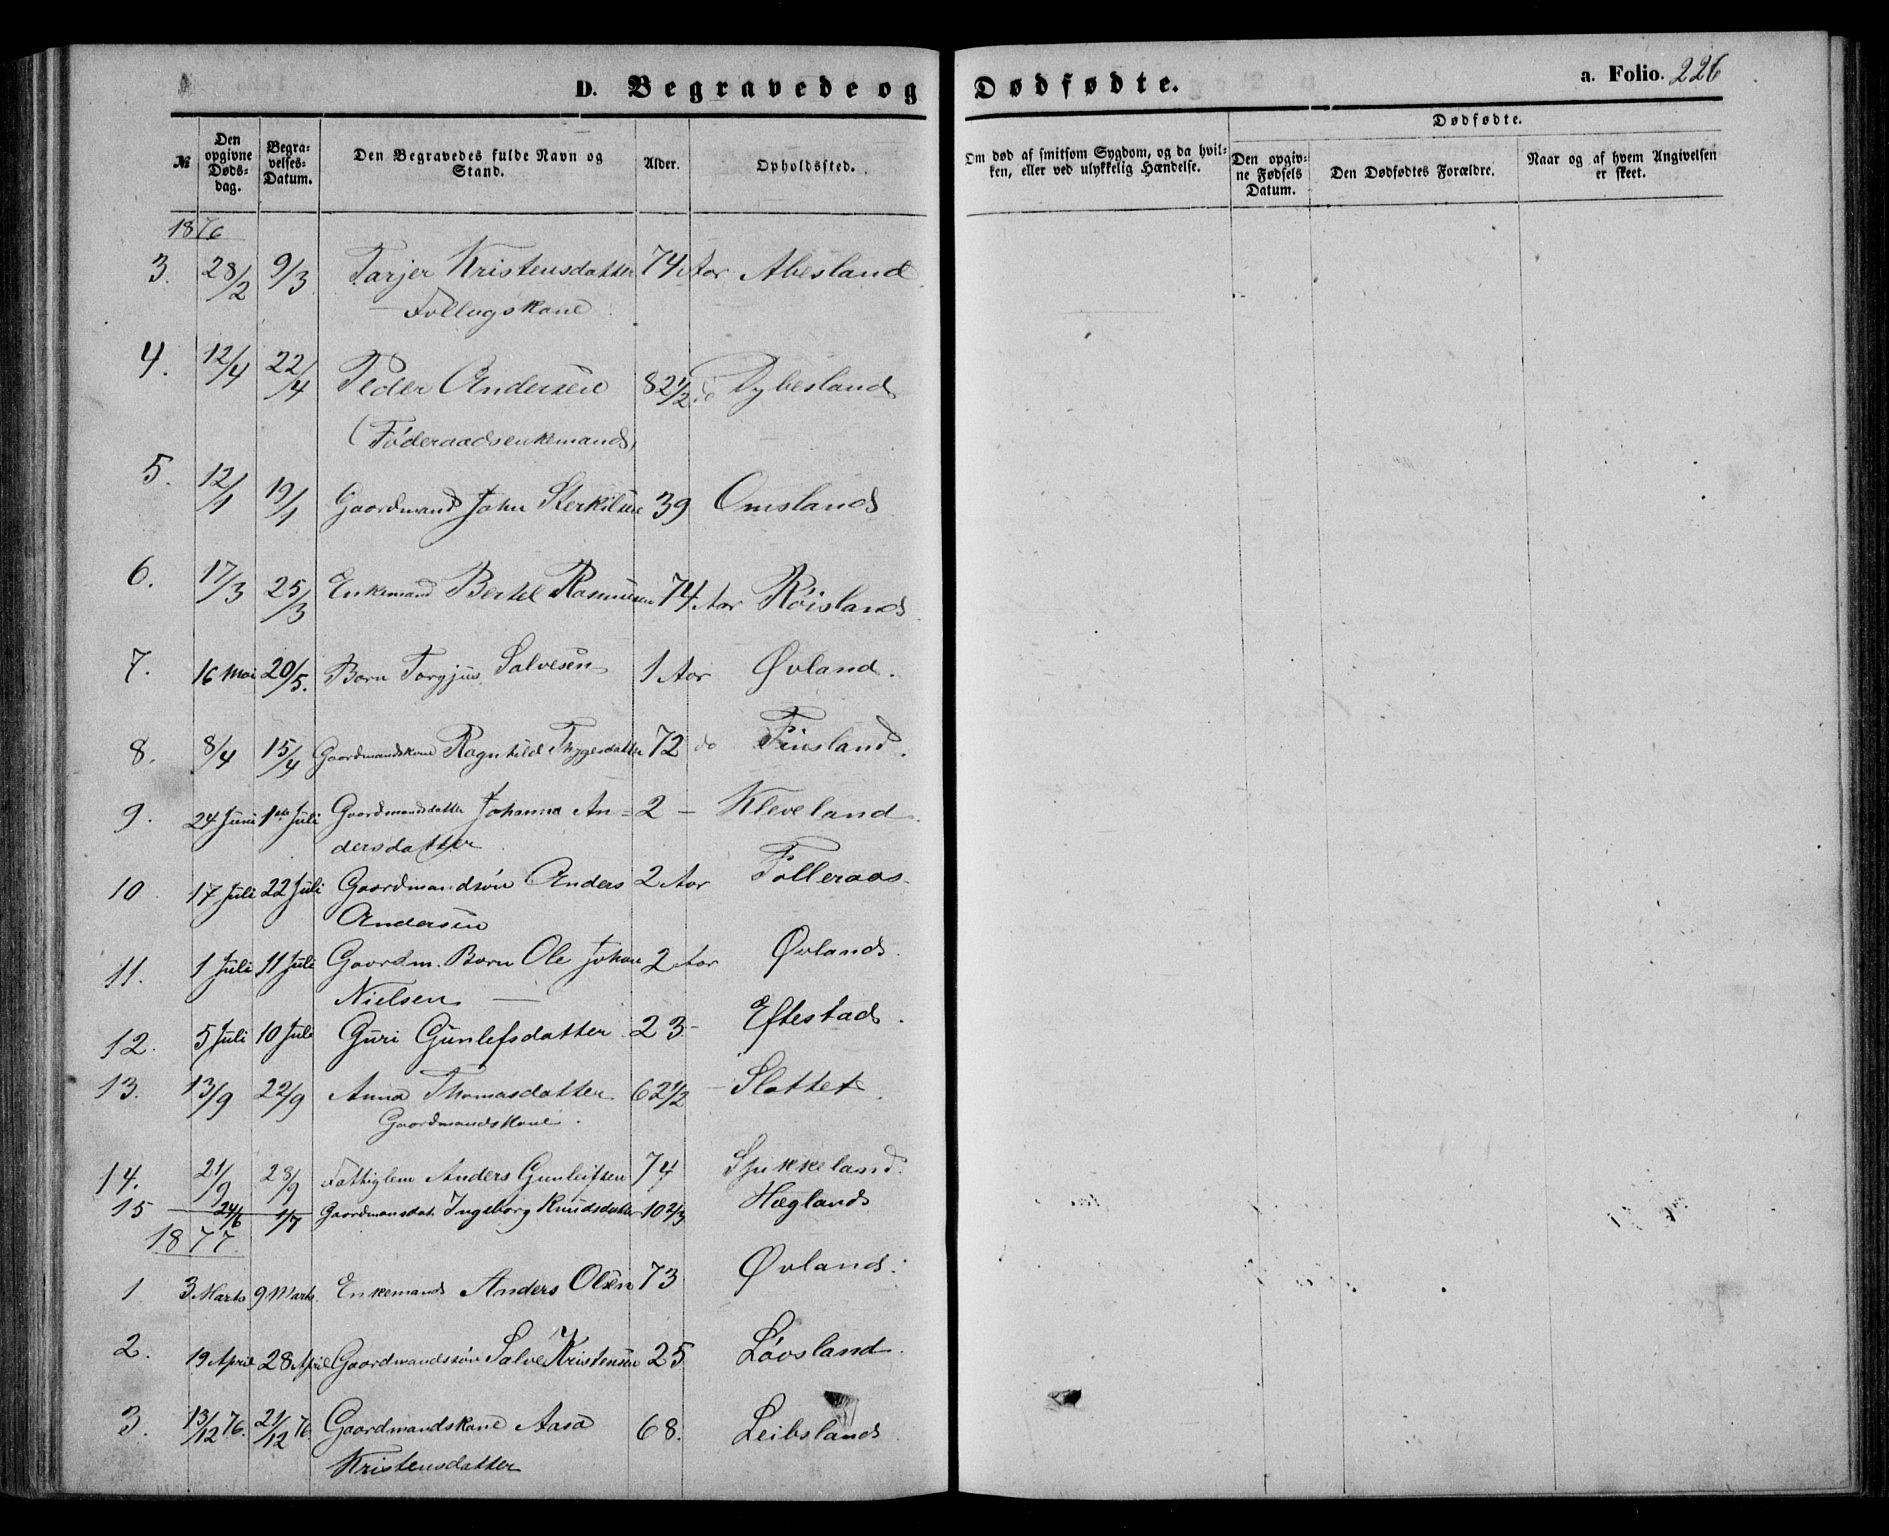 D. Begravede og Dødfødte.
a. Folio. 226
№
Den opgivne Døds-dag.
Begra-velses-Datum.
Den Begravedes fulde Navn og Stand.
Alder.
Opholdssted.
Om død af smitsom Sygdom, og da hvil-ken, eller ved ulykkelig Hændelse.
Dødfødte.
Den opgiv-ne Fødsels Datum.
Den Dødfødtes Forældre.
Naar og af hvem Angivelsen er skeet.
1876
3. 28/2 9/3 Tarjer Kristensdatter 74 Aar Abesland
Follugskone
4. 12/4 22/4 Peder Andersen 82 1/2 do Dybesland
(Föderaadsenkemand)
5. 12/1 19/1 Gaardmand John Sterkilsen 39 Omsland
6. 17/3 25/3 Enkemand Bertel Rasmusen 74 Aar Röisland
7. 16 Mai 20/5. Barn Torgjus Salvesen 1 Aar Øvland.
8. 8/4 15/4 Gaardmandskone Ragnhild Thygesdatter 72 do Finsland.
9. 24 Juni 1ste Juli Gaardmandsdatter Johanna An= 2 - Kleveland.
dersdatter
10 17 Juli 22 Juli Gaardmandsön Anders 2 Aar Folleraas.
Andersen
11. 1 Juli 11 Juli Gaardm. Barn Ole Johan 2 Aar Øvland.
Nielsen
12. 5 Juli 10 Juli Guri Gunlefsdatter 23 - Eftestad.
13. 13/9 22/9 Anna Thomasdatter 62 1/2 - Slottet.
Gaardmandskone.
14. 21/9 28/9 Fattiglem Anders Gunleifsen 74 Spikkeland.
15 24/6 1/7 Gaardmansdat. Ingeborg Knudsdatter 10 2/3 Hægland
1877
1. 3 Marts 9 Marts. Enkemand Anders Olsen 73 Øvland.
2. 19 April 28 April Gaardmandssön Salve Kristensen 25 Lövsland.
3. 13/12 76. 21/12 76 Gaardmandskone Aasa 68. Leibsland
Kristensdatter